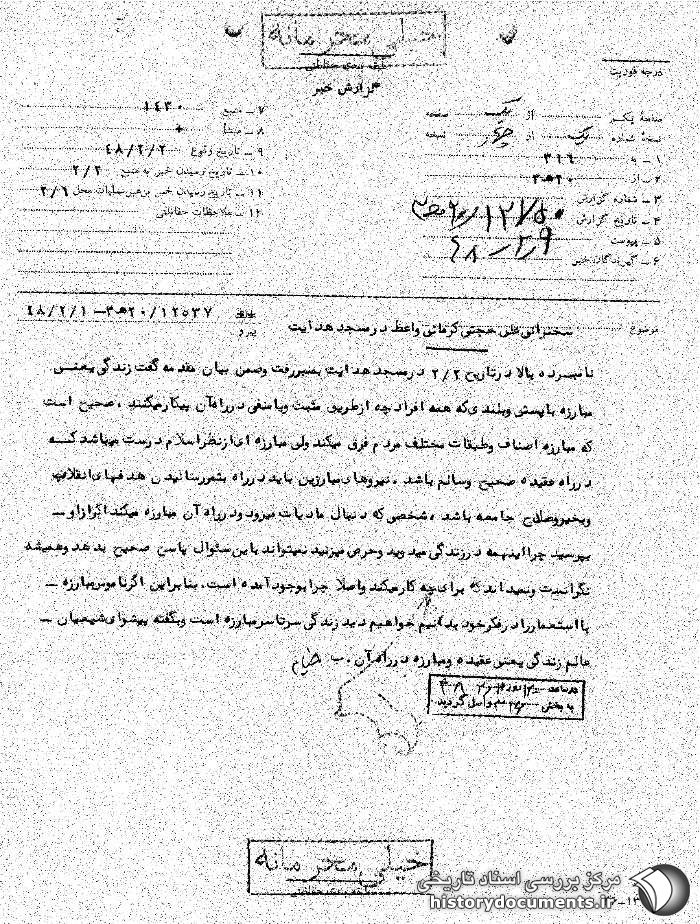 خیلی محرمانه
طبقه بندی حفاظتی
گزارش خبر
درجه فوریت
صفحه یک از یک صفحه
نسخه شماره یک از نسخه
۱ ـ به ۳۱۶
۲ ـ از ۲۰ ه‍ ۳
۳ ـ شماره گزارش
۴ ـ تاریخ گزارش
۵ ـ پیوست
۶ ـ گیرندگان خبر
۷ ـ منبع ۱۴۳۰
۸ ـ منشأ
۹ ـ تاریخ وقوع ۴۸/۲/۲
۱۰ ـ تاریخ رسیدن خبر به منبع ۲/۲
۱۱ ـ تاریخ رسیدن خبر برهبر عملیات محل ۲/۶
۱۲ ـ ملاحظات حفاظتی
موضوع سخنرانی علی حجتی کرمانی واعظ در مسجد هدایت
پیرو ۲۰/۱۲۵۳۷ ه‍ ۳ ـ ۴۸/۲/۱
نامبرده بالا در تاریخ ۲/۲ در مسجد هدایت بمنبر رفت وضمن بیان مقدمه گفت زندگی یعنی
مبارزه با پستی وبلندی که همه افراد چه از طریق مثبت ویا منفی در راه آن پیکار میکنند ، صحیح است
که مبارزه اصناف وطبقات مختلف مردم فرق میکند ولی مبارزه ای از نظر اسلام درست میباشد کسه
در راه عقیده صحیح وسالم باشد . نیروهای مبارزین باید در راه بثمر رسانیدن هدفهای انقلاب
وبخیر وصلاح جامعه باشد ، شخصی که دنبال مادیات میرود ودر راه آن مبارزه میکند اگر از او ـ
بپرسید چرا اینهمه در زندگی میدوید وحرص میزنید نمیتواند باین سئوال پاسخ صحیح بدهد وهمیشه
نگرانست ونمیداند که برای چه کار میکند واصلا چرا بوجود آمده است . بنابراین اگر ناموس مبارزه ـ
با استعمار را در فکر خود بدانیم خواهیم دید زندگی سرتاسر مبارزه است وبگفته پیشوای شیعیان ـ
عالم زندگی یعنی عقیده ومبارزه در راه آن .
در ساعت روز
به بخش واصل گردید
خیلی محرمانه
طبقه بندی حفاظتی
مرکز بررسی اسناد تاریخی
historydocuments.ir